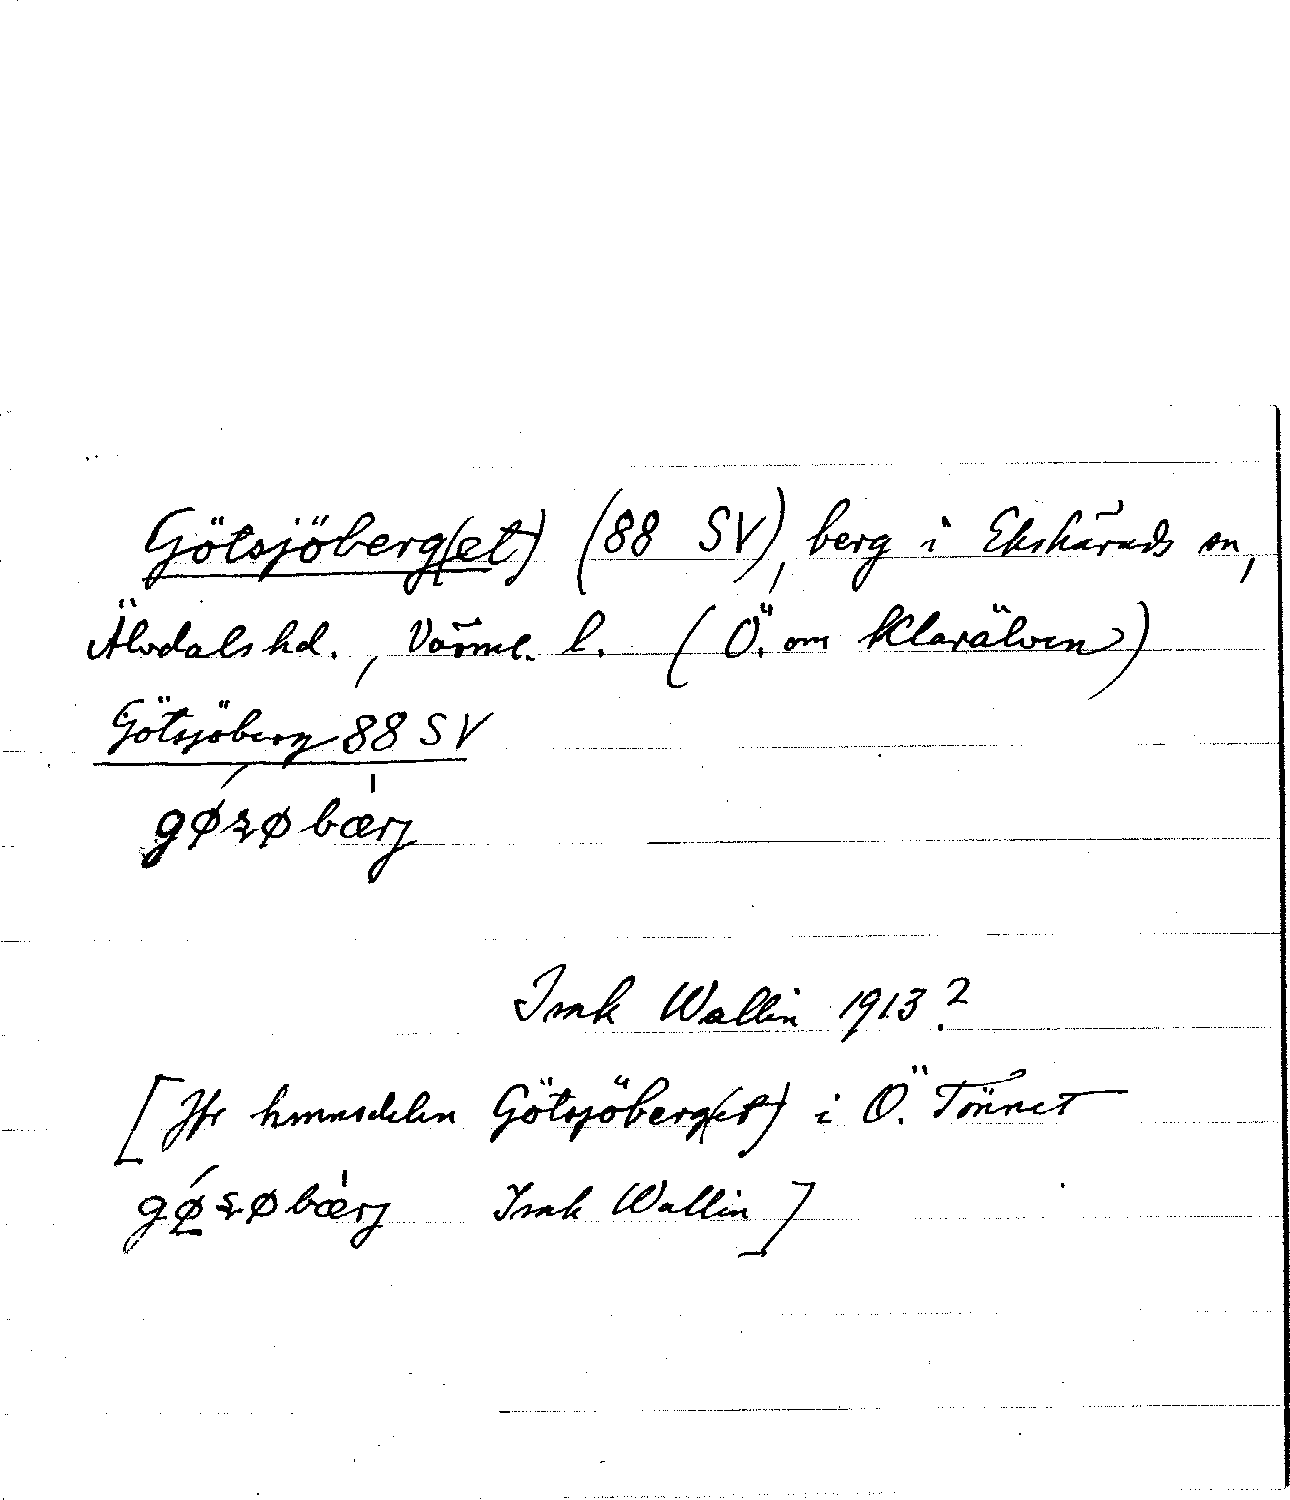 Götsjöberg(et) (88 SV), berg i Ekshärads sn,
Älvdals hd., Värml. l. (Ö. om Klarälven)
Götsjöberg 88 SV
gǿꝛøbær̍j
Isak Wallin 1913?
[Jfr hemmdelen Götsjöberg(et) i Ö. Tönnet
Isak Wallin]